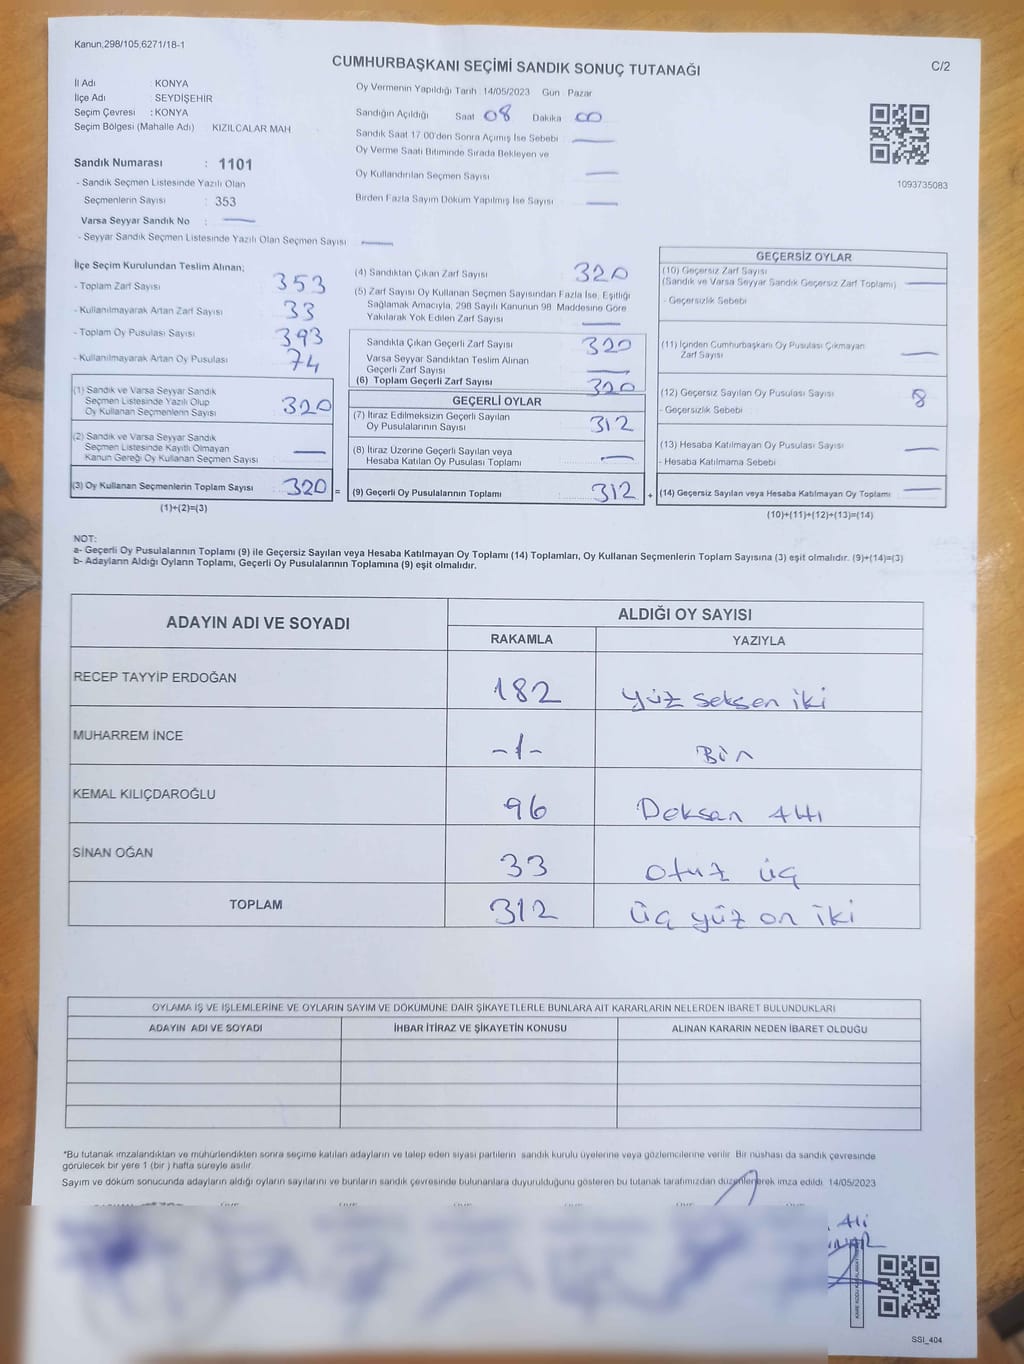 Kanun;298/105,6271/18-1
CUMHURBAŞKANI SEÇİMİ SANDIK SONUÇ TUTANAĞI
C/2
İl Adı KONYA
İlçe Adı SEYDİŞEHİR
Seçim Çevresi : KONYA
Seçim Bölgesi (Mahalle Adı) KIZILCALAR MAH
Sandık Numarası : 1101
- Sandık Seçmen Listesinde Yazılı Olan
Seçmenlerin Sayısı : 353
Varsa Seyyar Sandık No : —
- Seyyar Sandık Seçmen Listesinde Yazılı Olan Seçmen Sayısı —
Oy Vermenin Yapıldığı Tarih 14/05/2023 Gün Pazar
Sandığın Açıldığı Saat 08 Dakika 00
Sandık Saat 17 00'den Sonra Açımış İse Sebebi —
Oy Verme Saati Bitiminde Sırada Bekleyen ve
Oy Kullandırılan Seçmen Sayısı —
Birden Fazla Sayım Döküm Yapılmış İse Sayısı —
1093735083
İlçe Seçim Kurulundan Teslim Alınan;
- Toplam Zarf Sayısı 353
- Kullanılmayarak Artan Zarf Sayısı 33
- Toplam Oy Pusulası Sayısı 393
- Kullanılmayarak Artan Oy Pusulası 74
(1) Sandık ve Varsa Seyyar Sandık
Seçmen Listesinde Yazılı Olup
Oy Kullanan Seçmenlerin Sayısı 320
(2) Sandık ve Varsa Seyyar Sandık
Seçmen Listesinde Kayıtlı Olmayan
Kanun Gereği Oy Kullanan Seçmen Sayısı —
(3) Oy Kullanan Seçmenlerin Toplam Sayısı 320 =
(1)+(2)=(3)
(4) Sandıktan Çıkan Zarf Sayısı 320
(5) Zarf Sayısı Oy Kullanan Seçmen Sayısından Fazla İse, Eşitliği
Sağlamak Amacıyla, 298 Sayılı Kanunun 98. Maddesine Göre
Yakılarak Yok Edilen Zarf Sayısı —
Sandıkta Çıkan Geçerli Zarf Sayısı 320
Varsa Seyyar Sandıktan Teslim Alınan
Geçerli Zarf Sayısı —
(6) Toplam Geçerli Zarf Sayısı 320
GEÇERLİ OYLAR
(7) İtiraz Edilmeksizin Geçerli Sayılan
Oy Pusulalarının Sayısı 312
(8) İtiraz Üzerine Geçerli Sayılan veya
Hesaba Katılan Oy Pusulası Toplamı —
(9) Geçerli Oy Pusulalarının Toplamı 312 +
GEÇERSİZ OYLAR
(10) Geçersiz Zarf Sayısı
(Sandık ve Varsa Seyyar Sandık Geçersiz Zarf Toplamı) —
- Geçersizlik Sebebi
(11) İçinden Cumhurbaşkanı Oy Pusulası Çıkmayan
Zarf Sayısı —
(12) Geçersiz Sayılan Oy Pusulası Sayısı 8
- Geçersizlik Sebebi
(13) Hesaba Katılmayan Oy Pusulası Sayısı —
- Hesaba Katılmama Sebebi
(14) Geçersiz Sayılan veya Hesaba Katılmayan Oy Toplamı —
(10)+(11)+(12)+(13)=(14)
NOT:
a- Geçerli Oy Pusulalarının Toplamı (9) ile Geçersiz Sayılan veya Hesaba Katılmayan Oy Toplamı (14) Toplamları, Oy Kullanan Seçmenlerin Toplam Sayısına (3) eşit olmalıdır. (9)+(14)=(3)
b- Adayların Aldığı Oyların Toplamı, Geçerli Oy Pusulalarının Toplamına (9) eşit olmalıdır.
ADAYIN ADI VE SOYADI ALDIĞI OY SAYISI
RAKAMLA YAZIYLA
RECEP TAYYİP ERDOĞAN 182 yüz seksen iki
MUHARREM İNCE -1- Bir
KEMAL KILIÇDAROĞLU 96 Doksan Altı
SİNAN OĞAN 33 otuz üç
TOPLAM 312 üç yüz on iki
OYLAMA İŞ VE İŞLEMLERİNE VE OYLARIN SAYIM VE DÖKÜMÜNE DAİR ŞİKAYETLERLE BUNLARA AİT KARARLARIN NELERDEN İBARET BULUNDUKLARI
ADAYIN ADI VE SOYADI İHBAR İTİRAZ VE ŞİKAYETİN KONUSU ALINAN KARARIN NEDEN İBARET OLDUĞU
*Bu tutanak imzalandıktan ve mühürlendikten sonra seçime katılan adayların ve talep eden siyasi partilerin sandık kurulu üyelerine veya gözlemcilerine verilir. Bir nüshası da sandık çevresinde
görülecek bir yere 1 (bir ) hafta süreyle asılır.
Sayım ve döküm sonucunda adayların aldığı oyların sayılarını ve bunların sandık çevresinde bulunanlara duyurulduğunu gösteren bu tutanak tarafımızdan düzenlenerek imza edildi. 14/05/2023
Ali
SSI_404